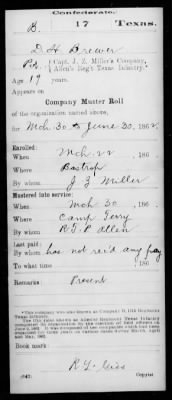 Confederate.
B. 17 Texas.
D. H. Brewer
Pvt., Capt. J. Z. Miller's Company,
Allen's Reg't Texas Infantry.*
Age 19 years.
Appears on
Company Muster Roll
of the organization named above,
for Mch. 30 to June 30, 1862.
Enrolled:
When Mch. 22, 186
Where Bastrop
By whom J. Z. Miller
Mustered into service:
When Mch 30, 186
Where Camp Terry
By whom R. T. P. Allen
Last paid:
By whom has not rec'd any pay
To what time , 186
Remarks: Present
*This company was also known as Company D, 17th Regiment
Texas Infantry.
Book mark:
(642) Copyist.